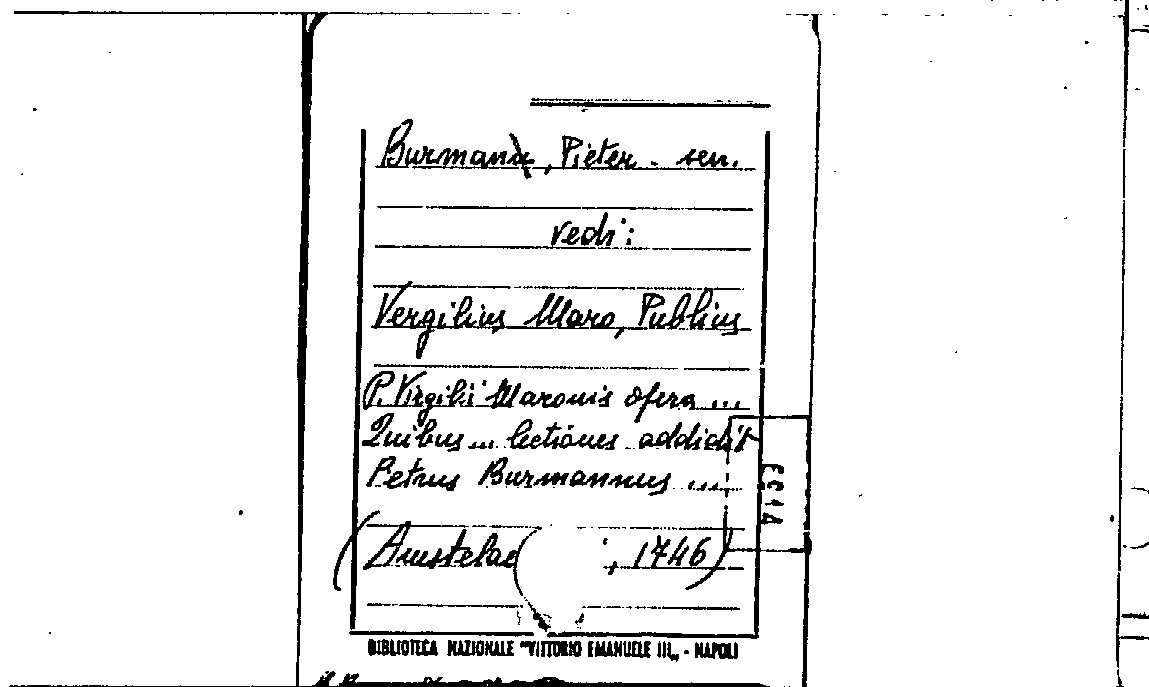 Burmann, Pieter - sen.
vedi:
Vergilius Maro, Publius
P. Virgilii Maronis Opera ...
Quibus ... lectiones addidit
Petrus Burmannus ...
(Amstelae , 1746)
BIBLIOTECA NAZIONALE "VITTORIO EMANUELE III„ - NAPOLI